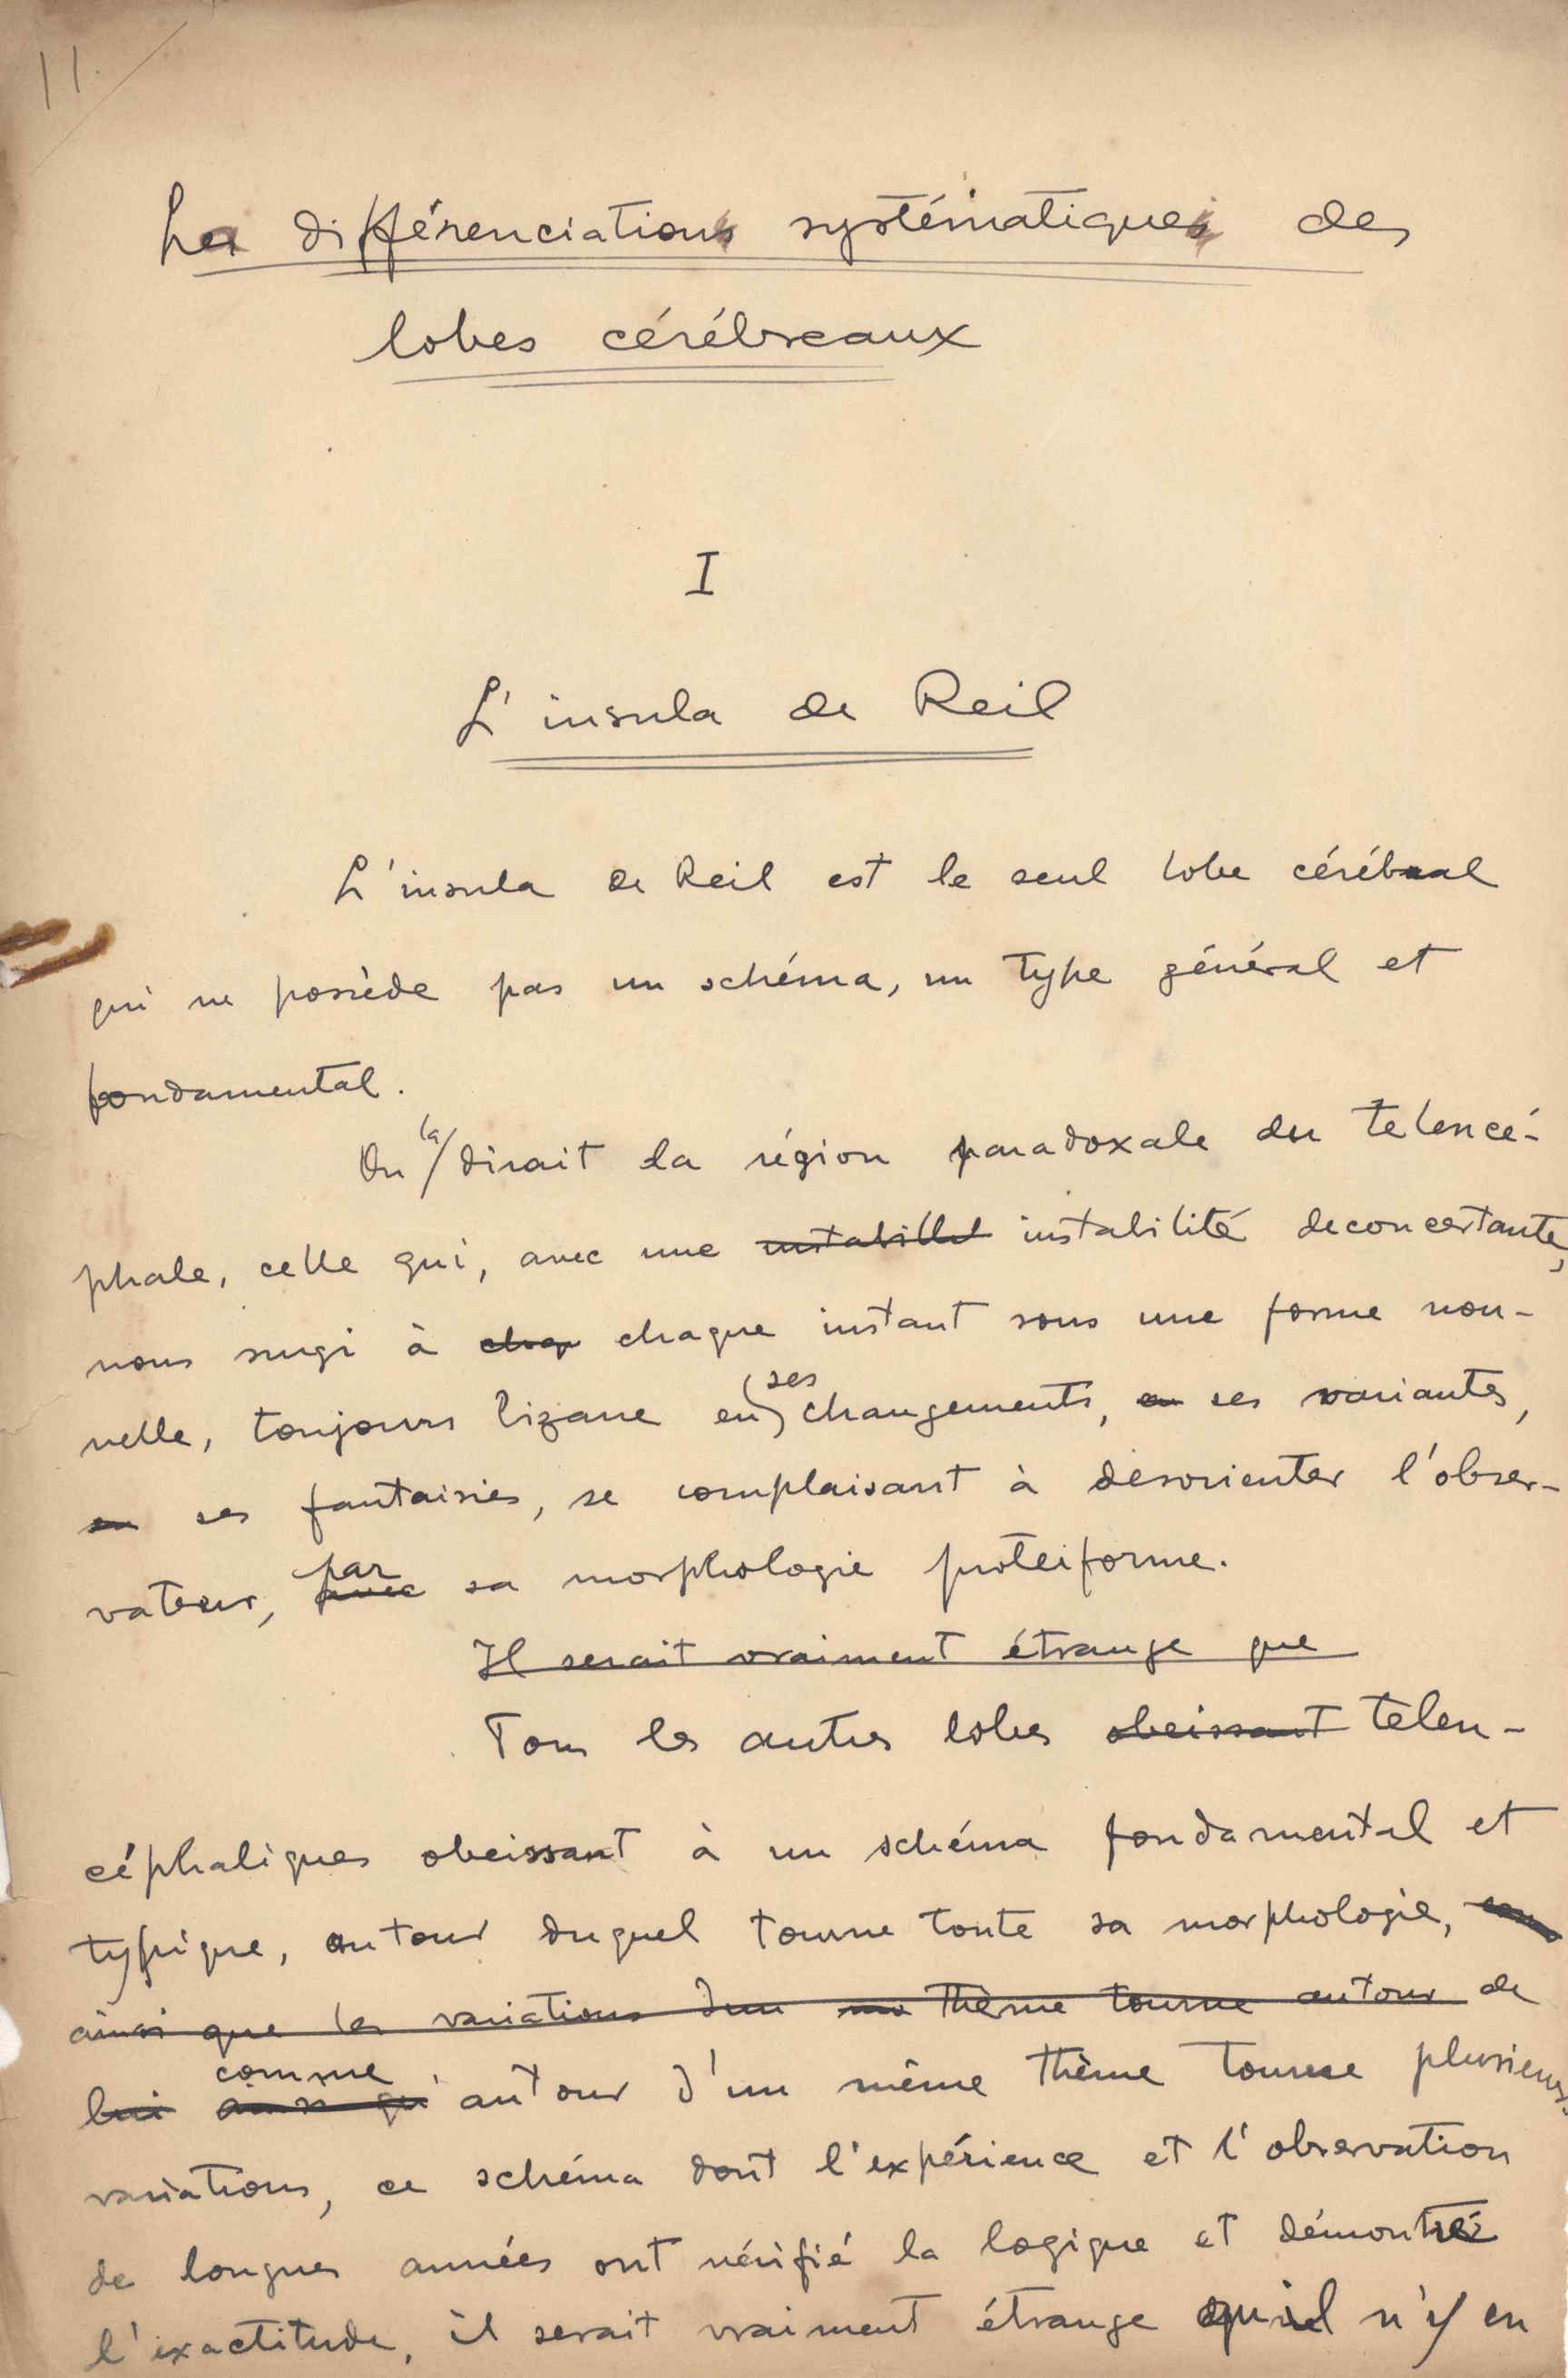 11.
La différenciation systématique des
lobes cérébraux
I
L'insula de Reil
L'insula de Reil est le seul lobe cérébral
qui ne possède pas un schéma, un type général et
fondamental.
On la dirait la région paradoxale du telencé-
phale, celle qui, avec une instabilité deconcertante,
nous surgi à chaque instant sous une forme nou-
velle, toujours bizarre en ses changements, ses variantes,
ses fantaisies, se complaisant à desorienter l'obser-
vateur, par sa morphologie proteiforme.
Il serait vraiment étrange que
Tous les autres lobes obeissant telen-
céphaliques obeissant à un schéma fondamental et
typique, autour duquel tourne toute sa morphologie,
ainsi que les variations d'un thème tourne autour de
lui comme autour d'un même thème tourne plusieurs
variations, ce schéma dont l'expérience et l'observation
de longues années ont vérifié la logique et démontré
l'exactitude, il serait vraiment étrange qu'il n'y en